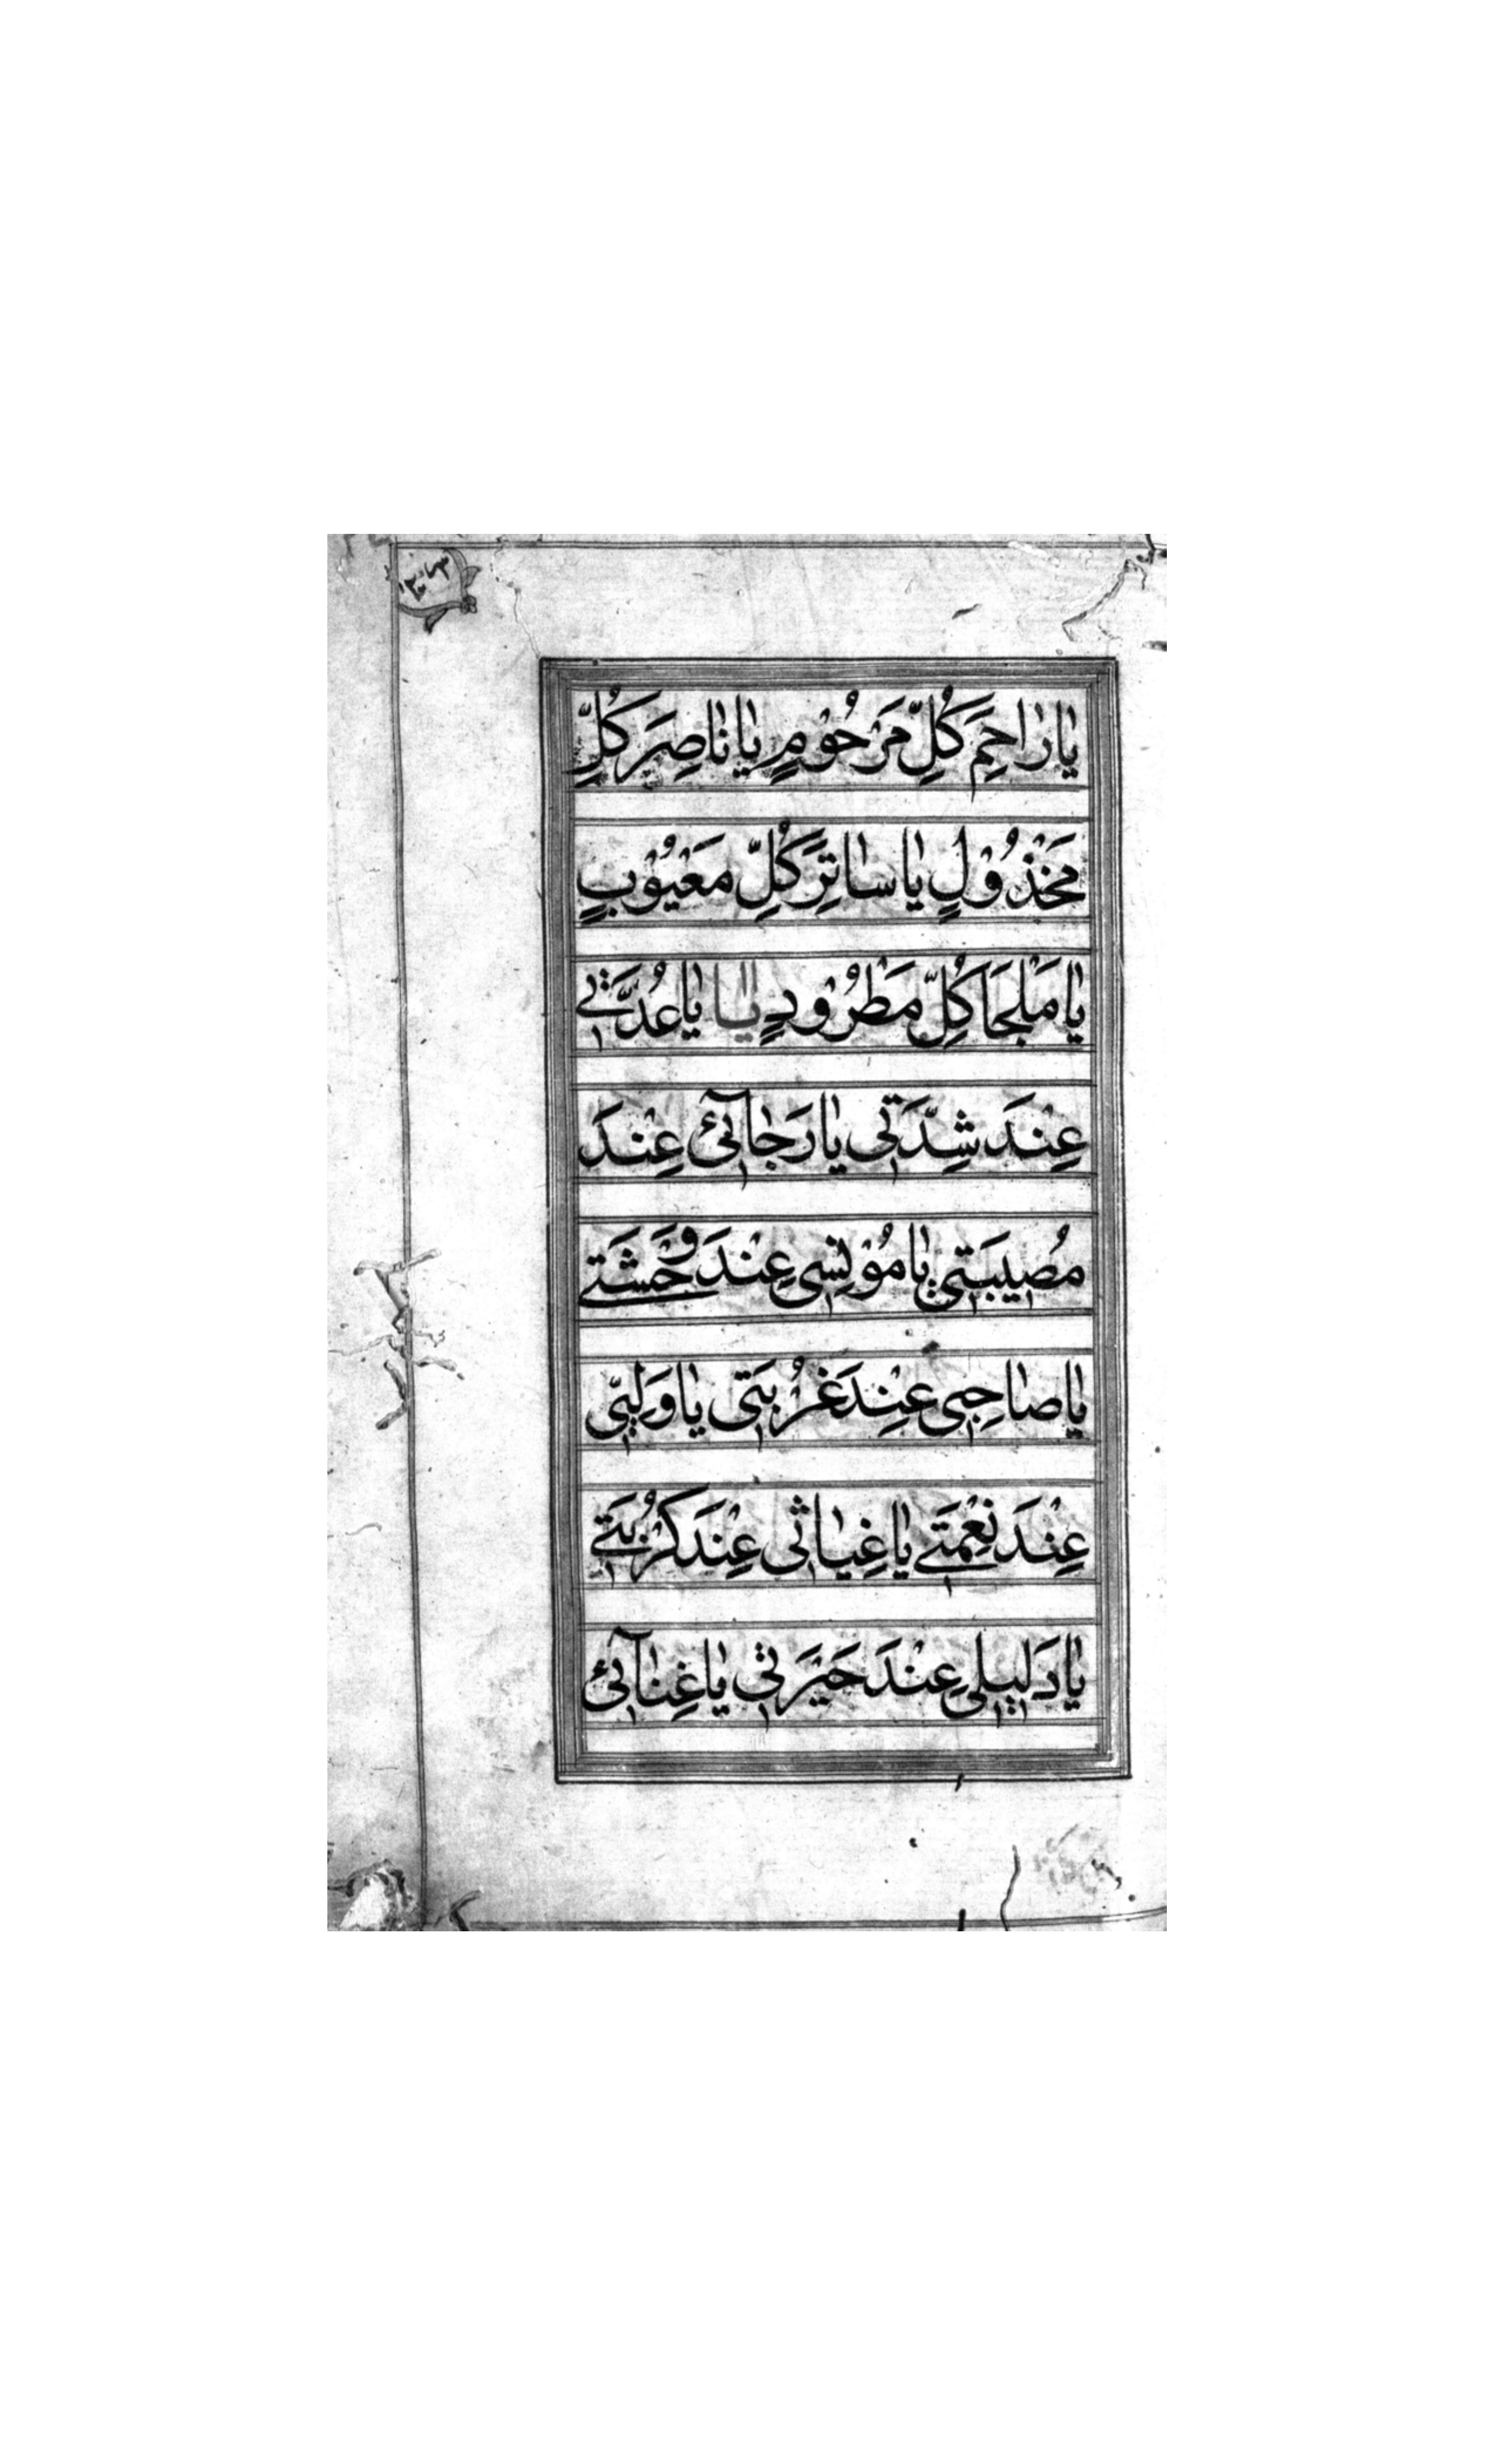 يٰا رٰاحِمَ كُلِّ مَرْحُوْمٍ يٰا نٰاصِرَ كُلِّ
مَخْذُوْلٍ يٰا سٰاتِرَ كُلِّ مَعْيُوْبٍ
يٰا مَلْجَأَ كُلِّ مَطْرُوْدٍ يٰا يٰا عُدَّتِي
عِنْدَ شِدَّتِي يٰا رَجٰآئِي عِنْدَ
مُصِيبَتِي يٰا مُوْنِسِي عِنْدَ وَحْشَتِے
يٰا صٰاحِبِي عِنْدَ غُرْبَتِي يٰا وَلِيِّي
عِنْدَ نِعْمَتِے يٰا غِيٰاثِي عِنْدَ كُرْبَتِے
يٰا دَلِيلِي عِنْدَ حَيْرَتِي يٰا غِنٰآئِي